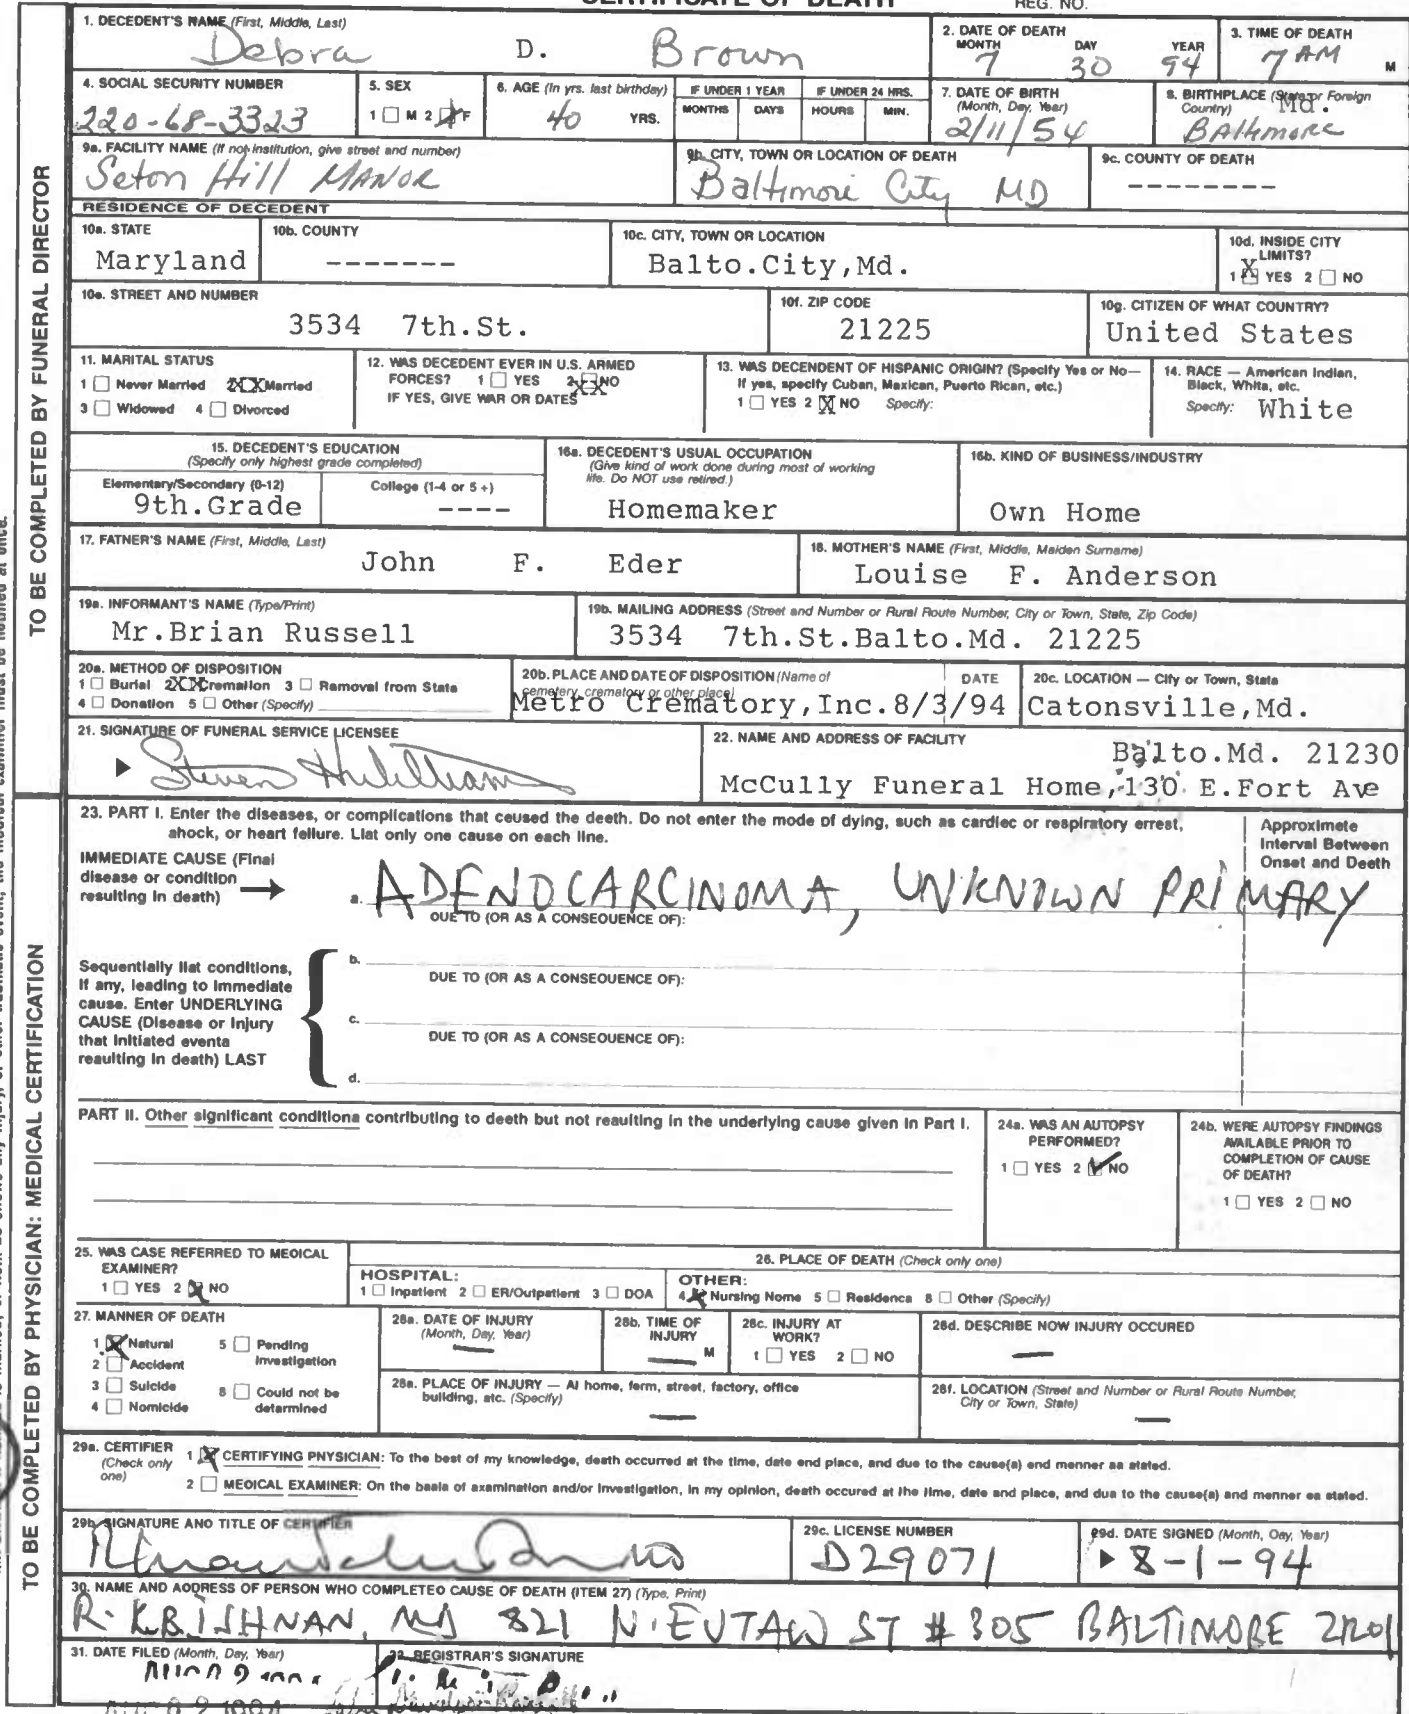 CERTIFICATE OF DEATH REG. NO.
1. DECEDENT'S NAME (First, Middle, Last)
Debra D. Brown
2. DATE OF DEATH
MONTH DAY YEAR
7 30 94
3. TIME OF DEATH
7 AM M
4. SOCIAL SECURITY NUMBER
220-68-3323
5. SEX
1 M 2 F
6. AGE (In yrs. last birthday)
40 YRS.
IF UNDER 1 YEAR
MONTHS DAYS
IF UNDER 24 HRS.
HOURS MIN.
7. DATE OF BIRTH
(Month, Day, Year)
2/11/54
8. BIRTHPLACE (State or Foreign
Country) Md.
BAltimore
9a. FACILITY NAME (If not institution, give street and number)
Seton Hill MANOR
9b. CITY, TOWN OR LOCATION OF DEATH
Baltimore City MD
9c. COUNTY OF DEATH
--------
RESIDENCE OF DECEDENT
10a. STATE
Maryland
10b. COUNTY
-------
10c. CITY, TOWN OR LOCATION
Balto.City,Md.
10d. INSIDE CITY
LIMITS?
X
1 YES 2 NO
10e. STREET AND NUMBER
3534 7th.St.
10f. ZIP CODE
21225
10g. CITIZEN OF WHAT COUNTRY?
United States
11. MARITAL STATUS
1 Never Married 2XX Married
3 Widowed 4 Divorced
12. WAS DECEDENT EVER IN U.S. ARMED
FORCES? 1 YES 2 XX NO
IF YES, GIVE WAR OR DATES
13. WAS DECENDENT OF HISPANIC ORIGIN? (Specify Yes or No—
If yes, specify Cuban, Maxican, Puerto Rican, etc.)
1 YES 2 X NO Specify:
14. RACE — American Indian,
Black, White, etc.
Specify: White
15. DECEDENT'S EDUCATION
(Specify only highest grade completed)
Elementary/Secondary (0-12) College (1-4 or 5 +)
9th.Grade ----
16a. DECEDENT'S USUAL OCCUPATION
(Give kind of work done during most of working
life. Do NOT use retired.)
Homemaker
16b. KIND OF BUSINESS/INDUSTRY
Own Home
17. FATNER'S NAME (First, Middle, Last)
John F. Eder
18. MOTHER'S NAME (First, Middle, Maiden Surname)
Louise F. Anderson
19a. INFORMANT'S NAME (Type/Print)
Mr.Brian Russell
19b. MAILING ADDRESS (Street and Number or Rural Route Number, City or Town, State, Zip Code)
3534 7th.St.Balto.Md. 21225
20a. METHOD OF DISPOSITION
1 Burial 2XX Cremation 3 Removal from State
4 Donation 5 Other (Specify)
20b. PLACE AND DATE OF DISPOSITION (Name of
cemetery, crematory or other place) DATE
Metro Crematory,Inc.8/3/94
20c. LOCATION — City or Town, State
Catonsville,Md.
21. SIGNATURE OF FUNERAL SERVICE LICENSEE
Steven
22. NAME AND ADDRESS OF FACILITY
Balto.Md. 21230
McCully Funeral Home,130 E.Fort Ave
TO BE COMPLETED BY FUNERAL DIRECTOR
23. PART I. Enter the diseases, or complications that ceused the deeth. Do not enter the mode of dying, such as cardiec or respiratory errest,
ahock, or heart fellure. Llat only one cause on each line.
Approximete
Interval Between
Onset and Deeth
IMMEDIATE CAUSE (Final
disease or condition
resulting in death)
a. ADENOCARCINOMA, UNKNOWN PRIMARY
DUE TO (OR AS A CONSEOUENCE OF):
Sequentially llat conditions,
If any, leading to Immediate
cause. Enter UNDERLYING
CAUSE (Disease or Injury
that Initiated eventa
reaulting In death) LAST
b.
DUE TO (OR AS A CONSEOUENCE OF):
c.
DUE TO (OR AS A CONSEOUENCE OF):
d.
PART II. Other significant conditiona contributing to deeth but not reaulting in the underlying cause given In Part I.
24a. WAS AN AUTOPSY
PERFORMED?
1 YES 2 NO
24b. WERE AUTOPSY FINDINGS
AVAILABLE PRIOR TO
COMPLETION OF CAUSE
OF DEATH?
1 YES 2 NO
25. WAS CASE REFERRED TO MEOICAL
EXAMINER?
1 YES 2 NO
26. PLACE OF DEATH (Check only one)
HOSPITAL:
1 Inpatlent 2 ER/Outpatient 3 DOA
OTHER:
4 Nursing Nome 5 Residenca 8 Other (Specify)
27. MANNER OF DEATH
1 Natural 5 Pending
Investigation
2 Accident
3 Sulcide 8 Could not be
determined
4 Nomicide
28a. DATE OF INJURY
(Month, Day, Year)
—
28b. TIME OF
INJURY
— M
28c. INJURY AT
WORK?
1 YES 2 NO
28d. DESCRIBE NOW INJURY OCCURED
—
28a. PLACE OF INJURY — Al home, ferm, street, factory, office
building, atc. (Specify)
—
281. LOCATION (Street and Number or Rural Route Number,
City or Town, State)
—
29a. CERTIFIER
(Check only
one)
1 CERTIFYING PHYSICIAN: To the best of my knowledge, death occurred at the tlme, date end place, and due to the cause(a) end menner aa atated.
2 MEOICAL EXAMINER: On the baala of axamination and/or Investigation, In my oplnlon, death occured at lhe llme, date and place, and dua to the cause(a) and menner ea atated.
29b. SIGNATURE ANO TITLE OF CERTIFIER
MD
29c. LICENSE NUMBER
D29071
29d. DATE SIGNED (Month, Oay, Year)
8-1-94
30. NAME AND AODRESS OF PERSON WHO COMPLETEO CAUSE OF DEATH (ITEM 27) (Type, Print)
R. KRISHNAN, MD 821 N. EUTAW ST # 305 BALTIMORE 21201
31. DATE FILED (Month, Day, Year)
32. REGISTRAR'S SIGNATURE
TO BE COMPLETED BY PHYSICIAN: MEDICAL CERTIFICATION